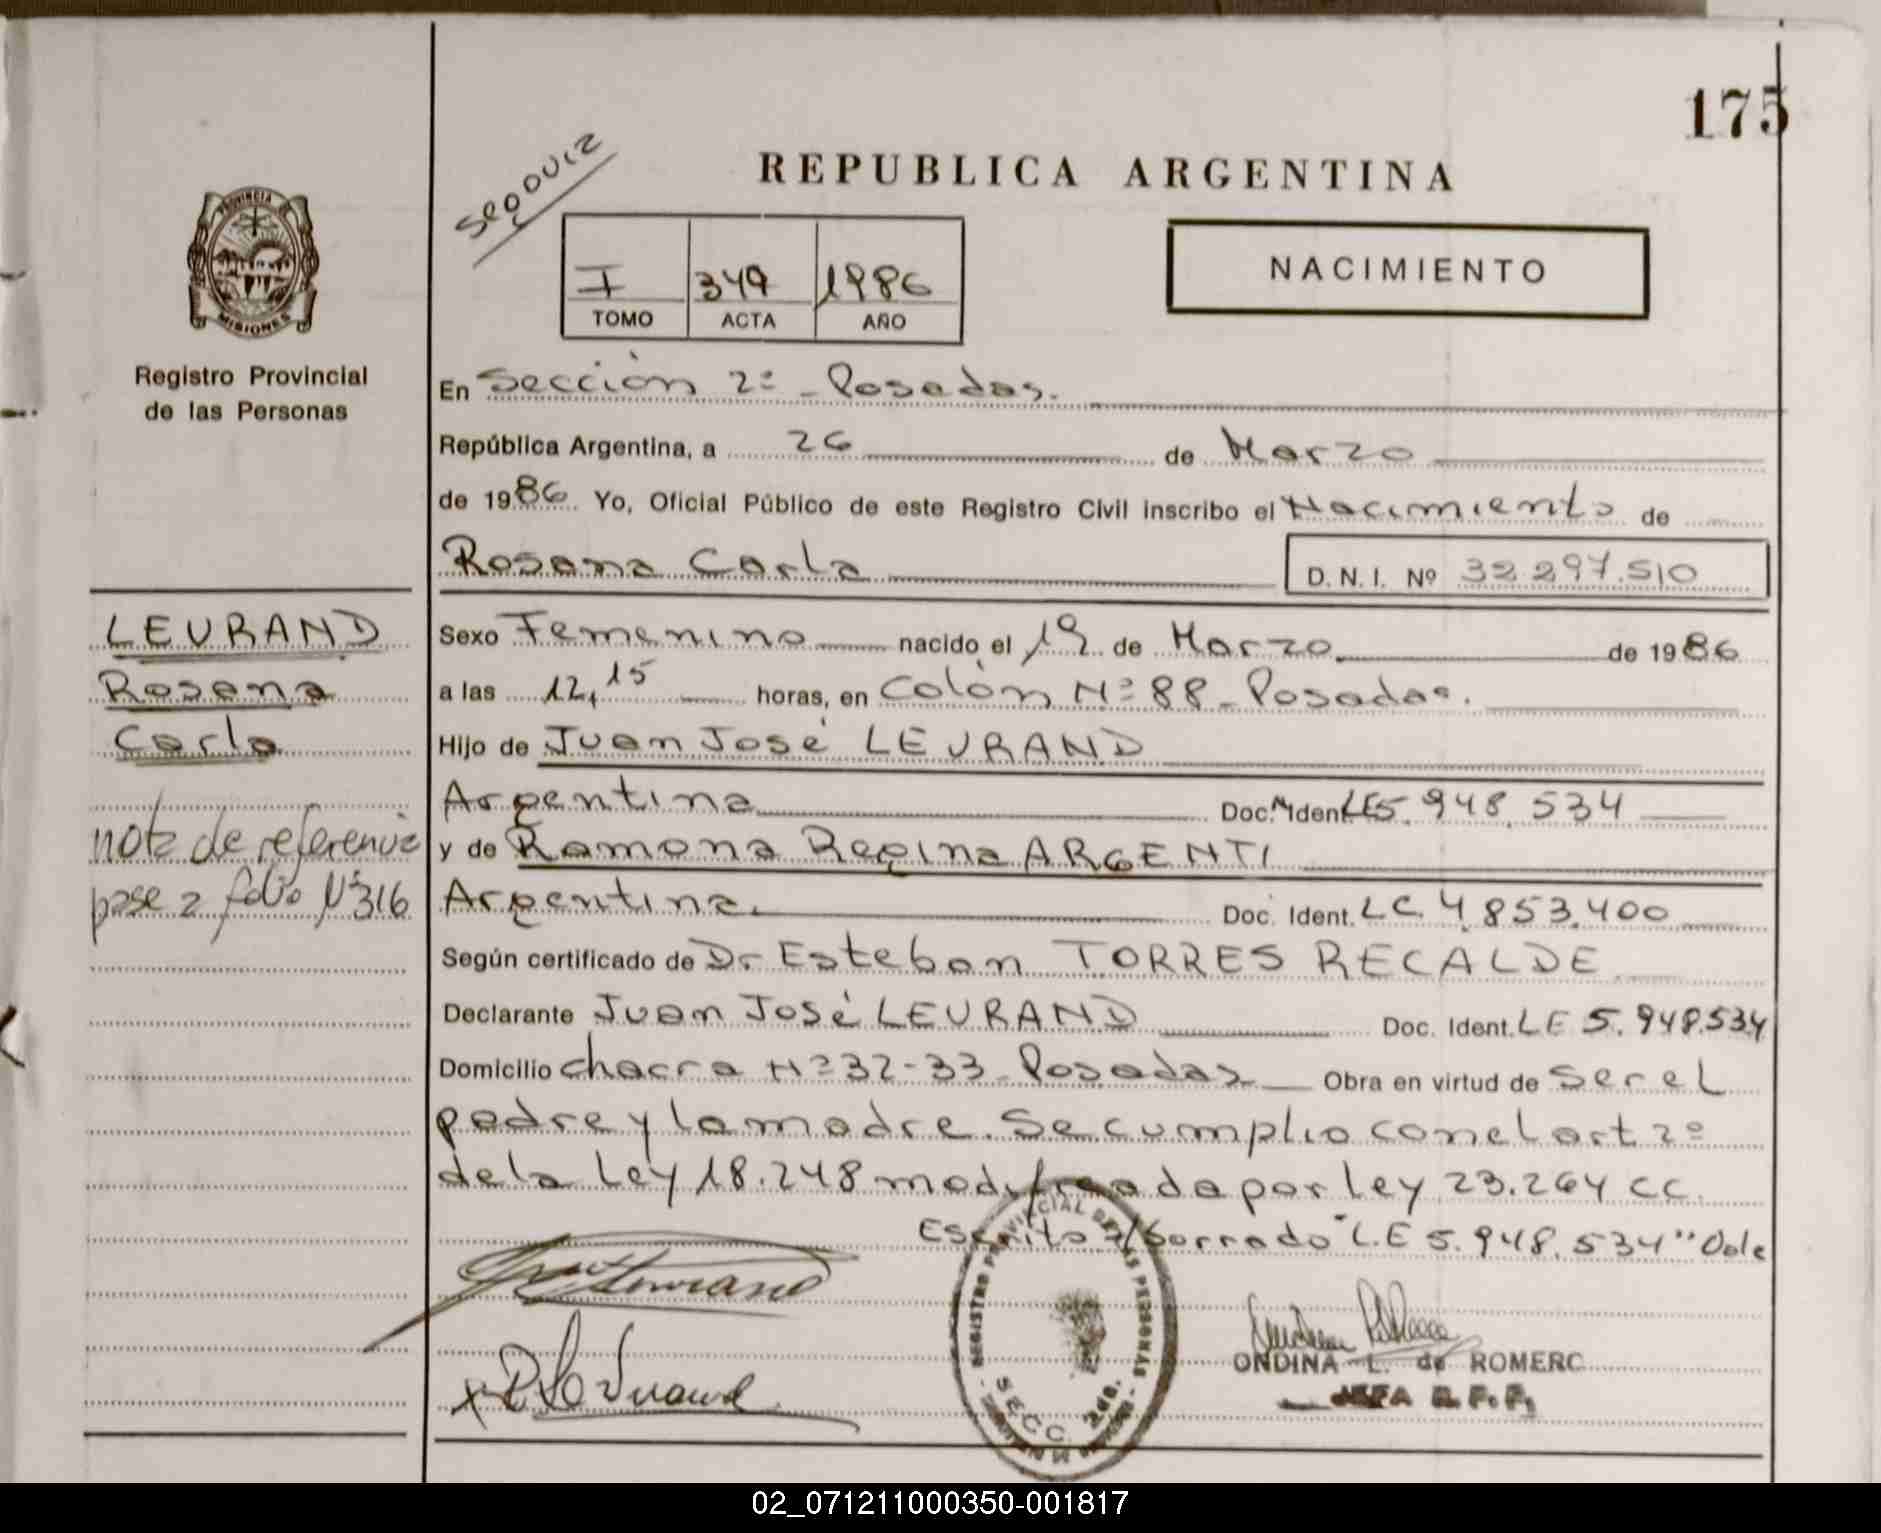 175
REPUBLICA ARGENTINA
NACIMIENTO
I 349 1986
TOMO ACTA AÑO
PROVINCIA DE
MISIONES
Registro Provincial
de las Personas
En Sección 2º - Posadas.
República Argentina, a 26 de Marzo
de 1986. Yo, Oficial Público de este Registro Civil inscribo el Nacimiento de
Rosana Carla D.N.I. Nº 32.297.510
LEURAND
Rosana
Carla
nota de referencia
pase a folio Nº 316
Sexo Femenino nacido el 19 de Marzo de 1986
a las 12,15 horas, en Colón Nº 88 - Posadas.
Hijo de Juan José LEURAND
Argentina Doc. Ident. LE 5.948.534
y de Ramona Regina ARGENTI
Argentina. Doc. Ident. LC. 4.853.400
Según certificado de Dr Esteban TORRES RECALDE
Declarante Juan José LEURAND Doc. Ident. LE 5.948.534
Domicilio chacra Nº 32-33 Posadas Obra en virtud de ser el
padre y la madre. Se cumplio con el art 2º
de la Ley 18.248 modificada por ley 23.264 CC.
Escrito s/borrado "L.E 5.948.534" Vale
REGISTRO PROVINCIAL DE LAS PERSONAS
SECC. 2da.
ONDINA L. de ROMERO
JEFA R.F.F.
02_071211000350-001817